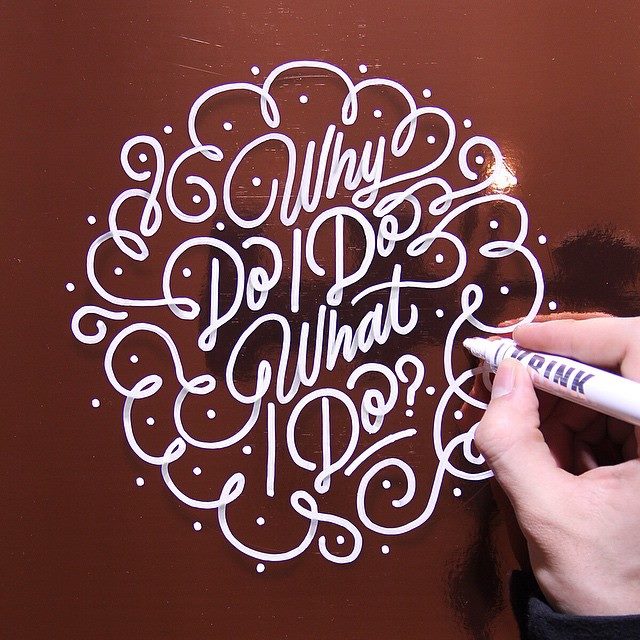 Why
Do I Do
What
I Do?
KRINK